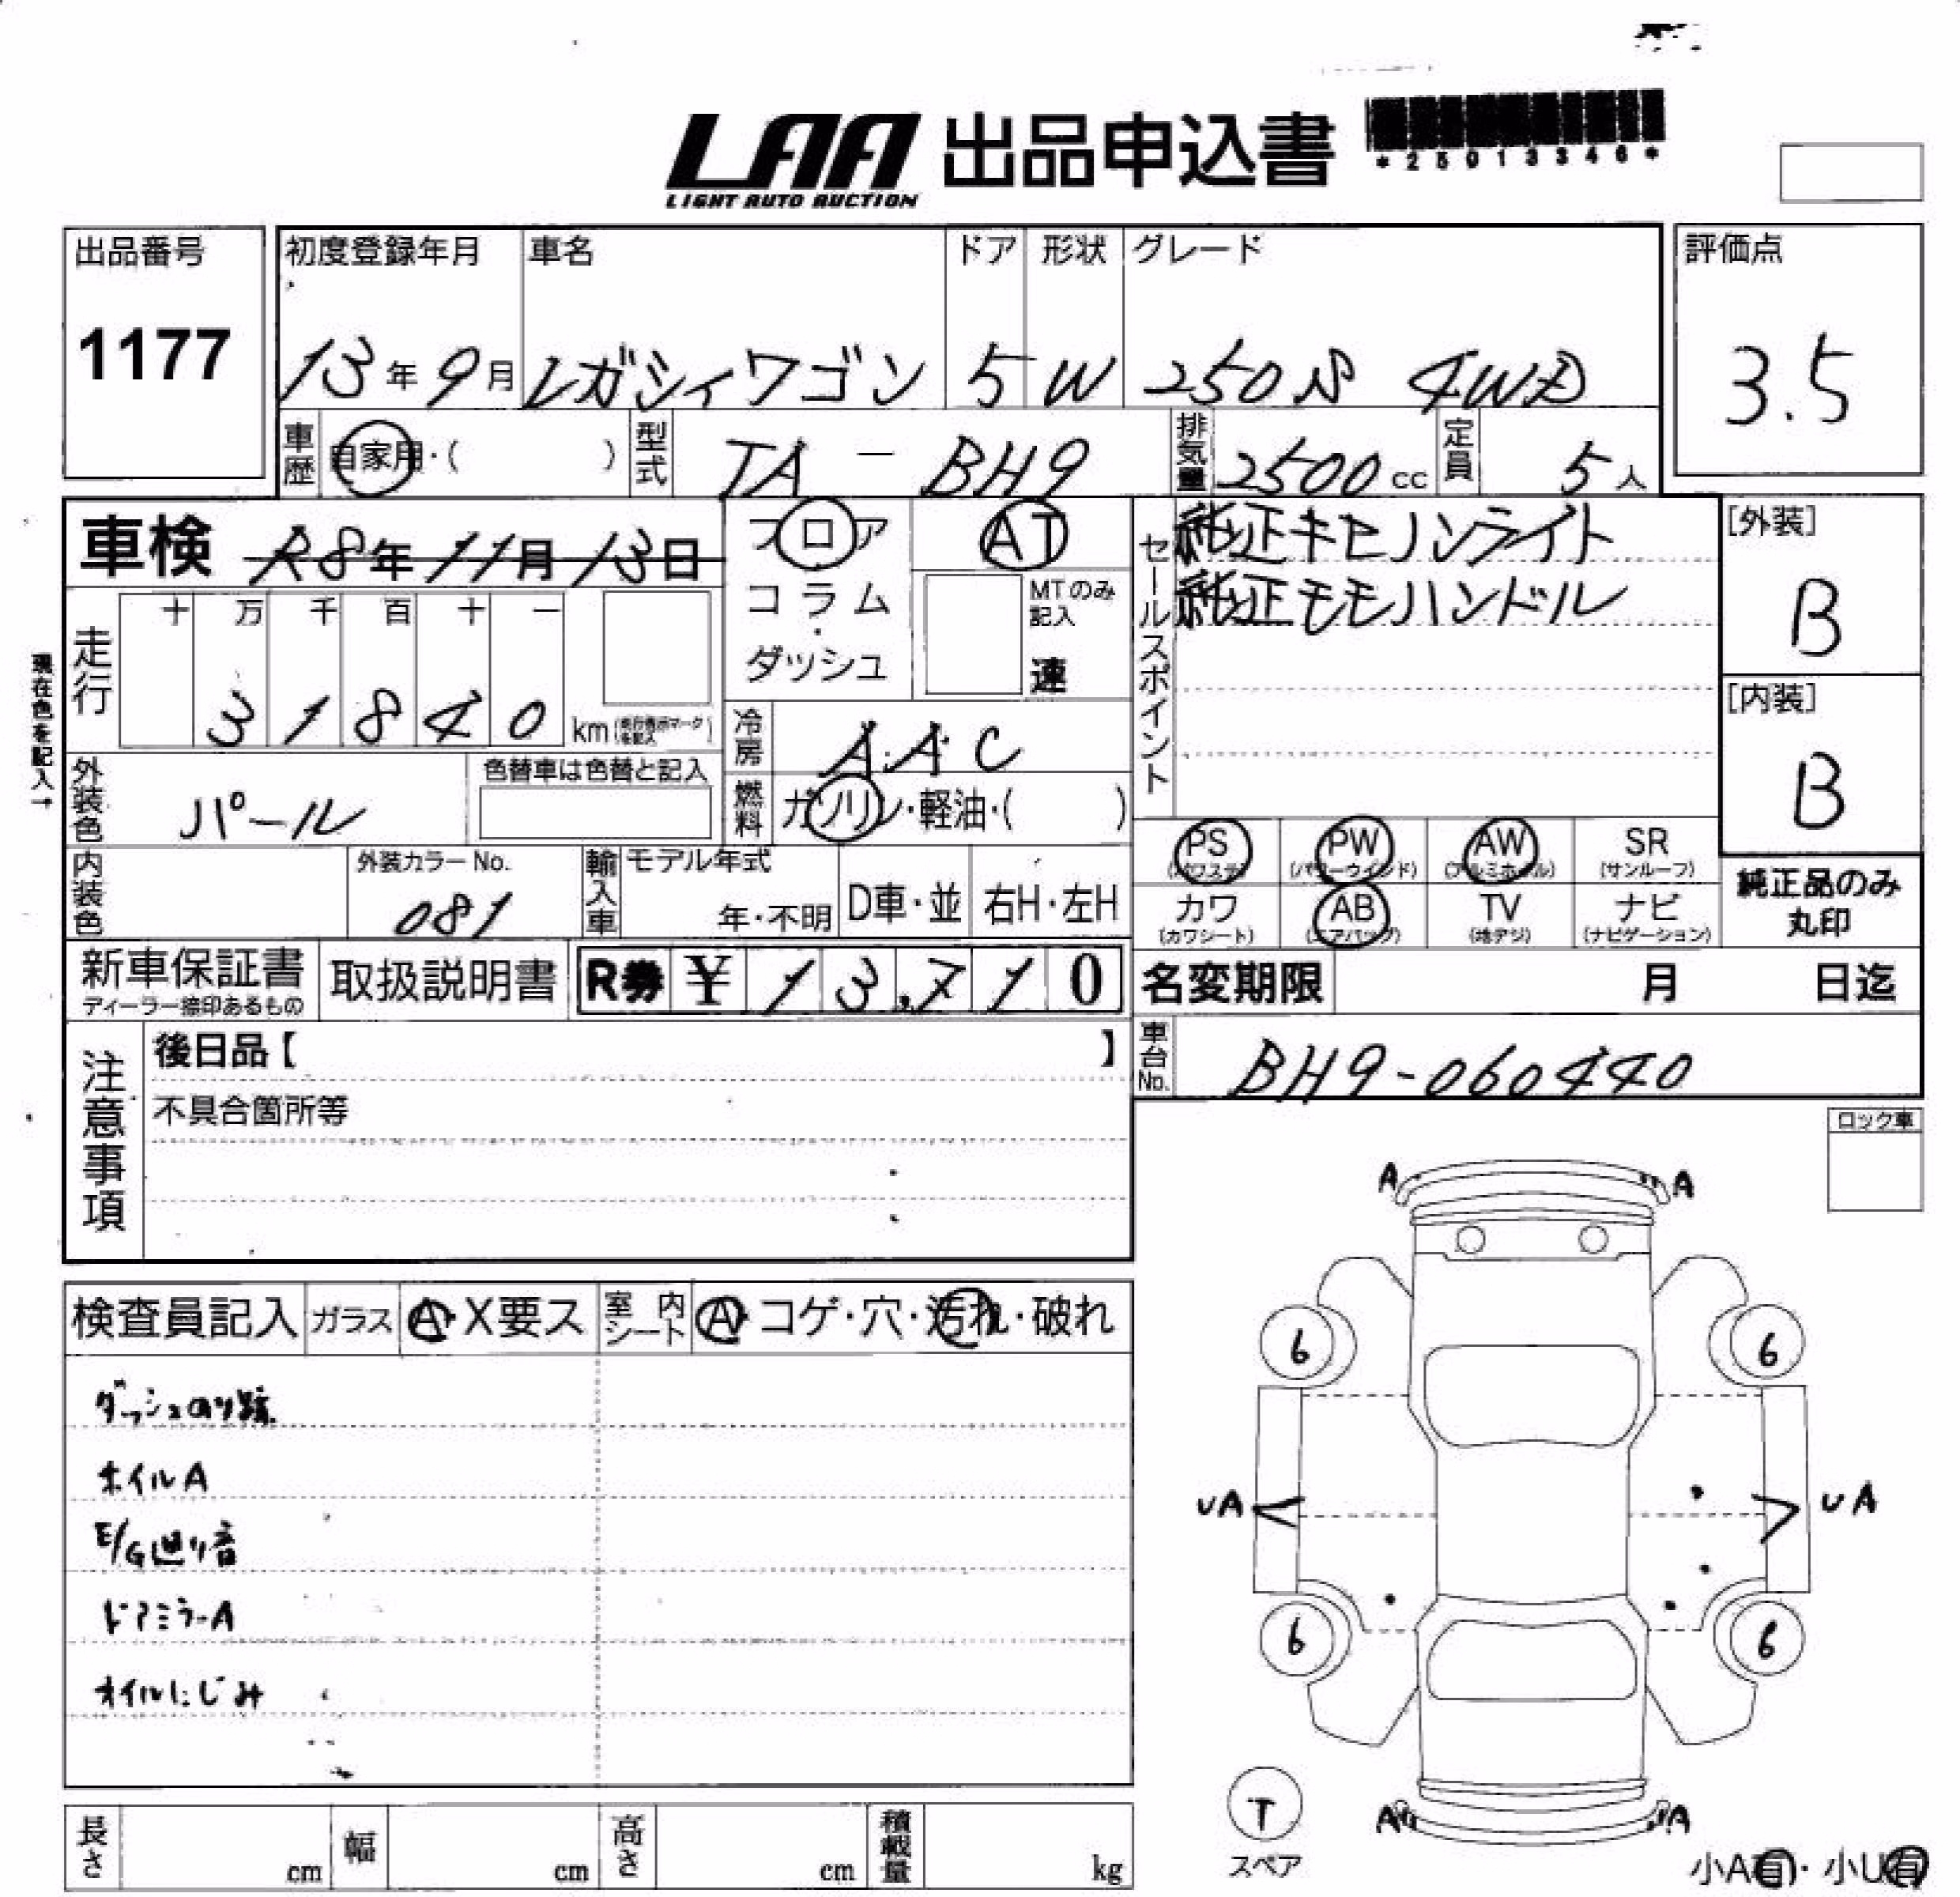 LAA 出品申込書
LIGHT AUTO AUCTION
*25013346*
出品番号
1177
初度登録年月 車名 ドア 形状 グレード
13年9月 レガシィワゴン 5 W 250S 4WD
評価点
3.5
車歴 自家用・( ) 型式 TA－BH9 排気量 2500cc 定員 5人
車検 R8年11月13日
フロア
コラム
・
ダッシュ
AT
MTのみ
記入
速
セールスポイント
純正キセノンライト
純正モモハンドル
[外装]
B
[内装]
B
現在色を記入→
走行 十 万 千 百 十 一
31840 km (走行表示マークを記入)
冷房 AAC
外装色 パール 色替車は色替と記入
燃料 ガソリン・軽油・( )
PS PW AW SR
(パワステ) (パワーウインド) (アルミホイル) (サンルーフ)
カワ AB TV ナビ
(カワシート) (エアバック) (地デジ) (ナビゲーション)
純正品のみ
丸印
内装色 外装カラーNo. 081
輸入車 モデル年式 年・不明 D車・並 右H・左H
新車保証書 取扱説明書 R券 ¥ 13,710
ディーラー捺印あるもの
名変期限 月 日迄
車台No. BH9-060440
注意事項
後日品【 】
不具合箇所等
ロック車
検査員記入 ガラス A・X要ス 室内シート A・コゲ・穴・汚れ・破れ
ダッシュのり跡
ホイルA
E/G廻り音
ドアミラーA
オイルにじみ
A A
6 6
UA UA
6 6
T
スペア
A A
小A有・小U有
長さ cm 幅 cm 高さ cm 積載量 kg